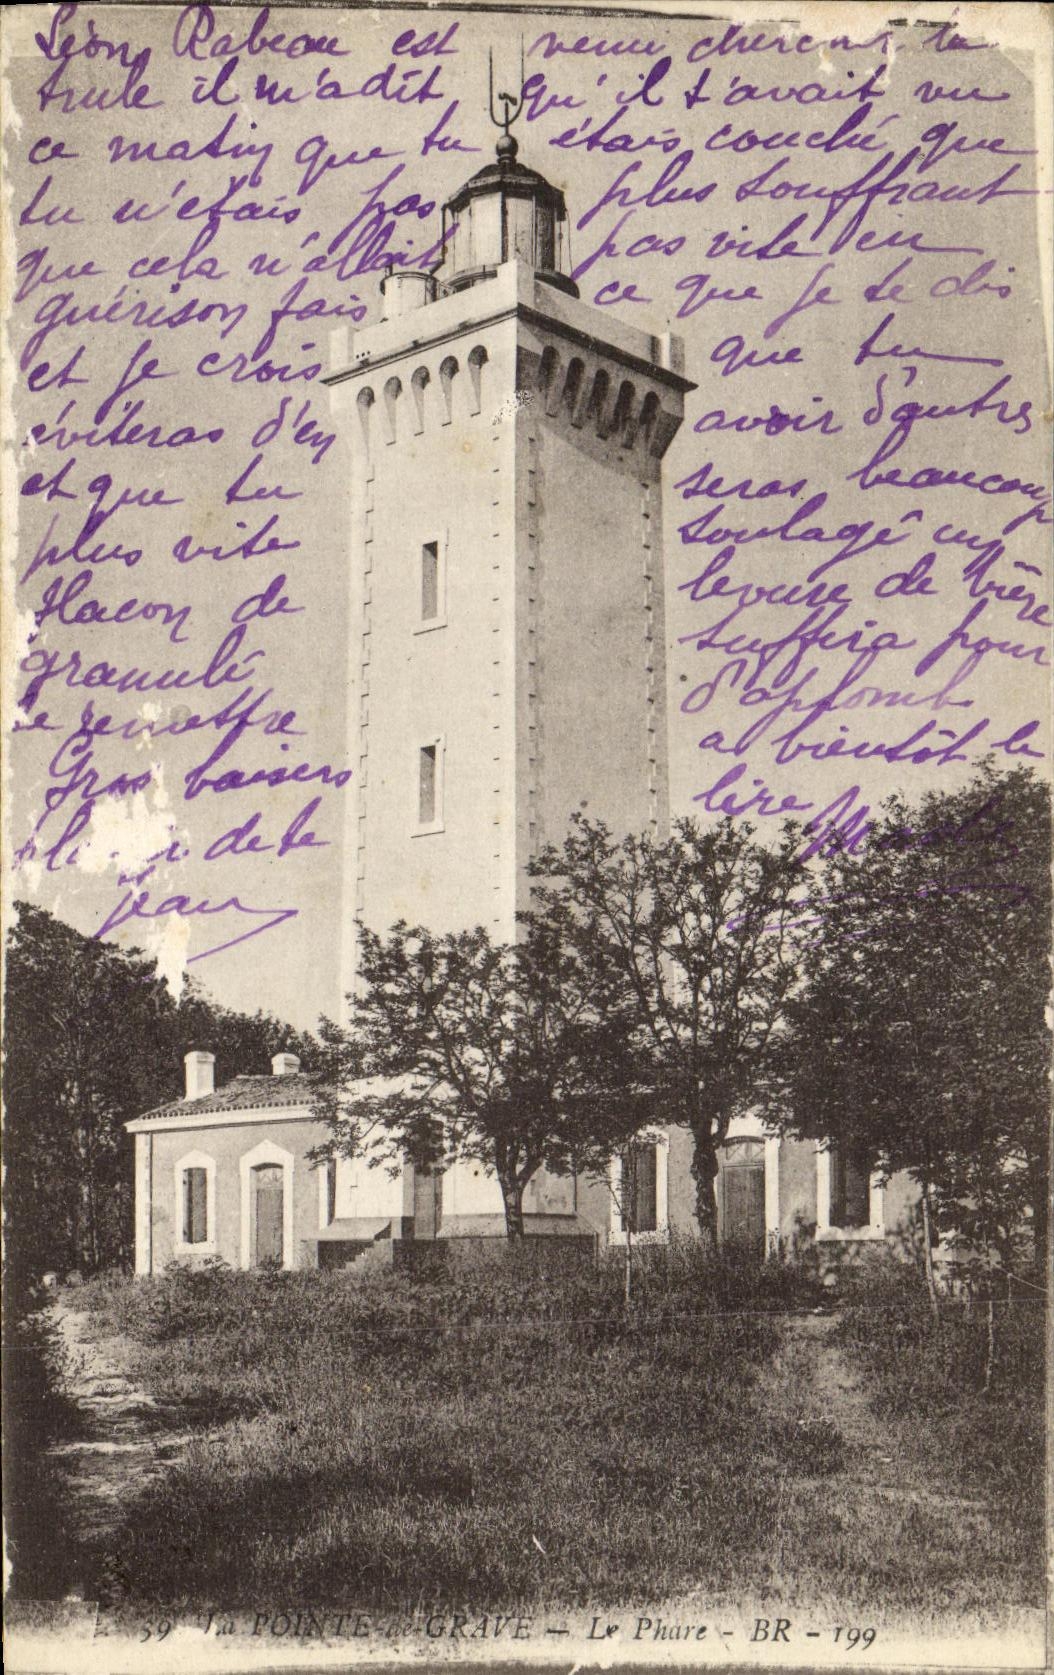 Léon Rabeau est venu chercher ta
trule il m'a dit qu'il t'avait vu
ce matin que tu étais couché que
tu n'étais pas plus souffrant
que cela n'allait pas vite en
guérison fais ce que je te dis
et je crois que tu
éviteras d'en avoir d'autres
et que tu seras beaucoup
plus vite soulagé un
flacon de levure de bière
granulé suffira pour
te remettre d'aplomb
Gros baisers a bientôt le
de te lire
Jean
59 La POINTE-de-GRAVE — Le Phare - BR - 199